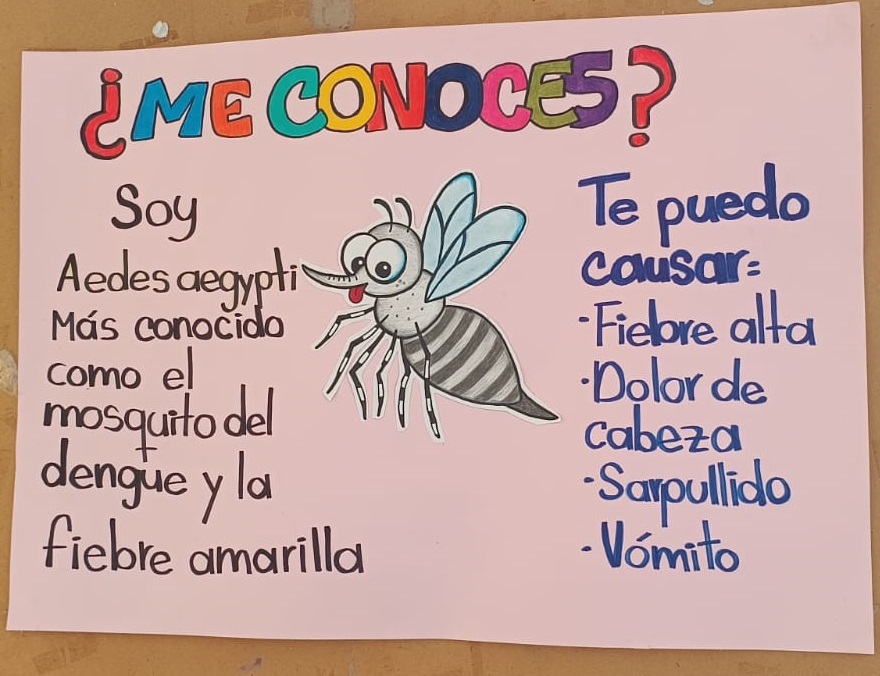 ¿ME CONOCES?
Soy
Aedes aegypti
Más conocido
como el
mosquito del
dengue y la
fiebre amarilla
Te puedo
causar:
·Fiebre alta
·Dolor de
cabeza
·Sarpullido
·Vómito